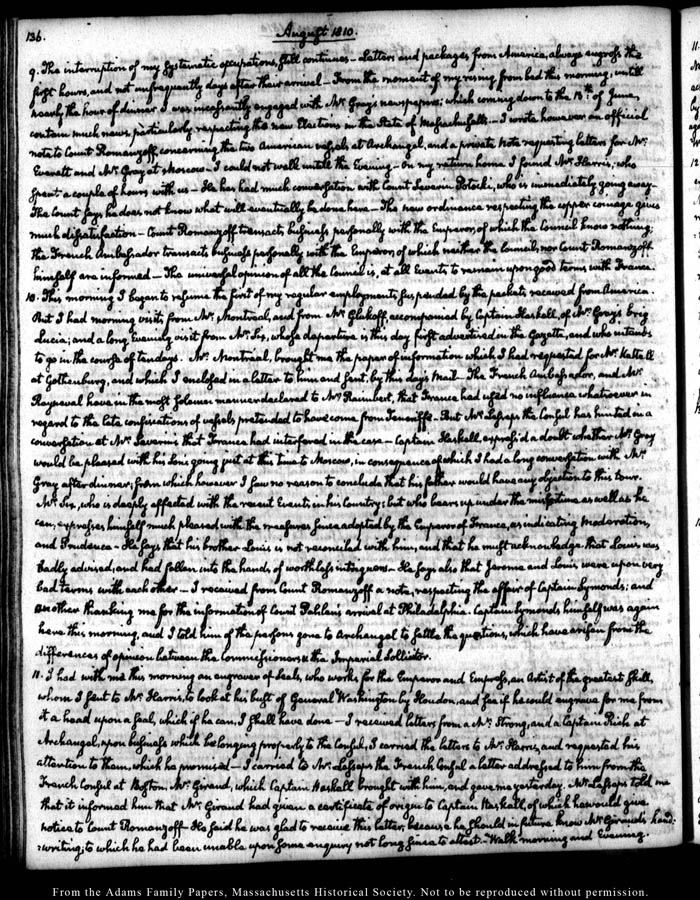 136.
August 1810.
9. The interruption of my systematic occupations, still continues — Letters and packages from America, always engross the
first hours, and not unfrequently days after their arrival — From the moment of my rising from bed this morning, until
nearly the hour of dinner I was incessantly engaged with Mr. Gray's newspapers; which coming down to the 18th. of June,
contain much news, particularly respecting the new Elections in the State of Massachusetts — I wrote however an official
note to Count Romanzoff, concerning the two American vessels at Archangel, and a private Note requesting letters for Mr.
Everett and Mr. Gray at Moscow — I could not walk untill the Evening — On my return home I found Mr. Harris, who
spent a couple of hours with us — He has had much conversation with Count Severin Potocki, who is immediately going away —
The Count says he does not know what will eventually be done here — The new ordinance respecting the copper coinage gives
much dissatisfaction — Count Romanzoff transacts business personally with the Emperor, of which the Council know nothing;
the French Ambassador transacts business personally with the Emperor, of which neither the Council, nor Count Romanzoff
himself are informed — The universal opinion of all the Council is, at all Events to remain upon good terms with France.
10. This morning I began to resume the first of my regular employments suspended by the packets received from America.
But I had morning visits from Mr. Montreal, and from Mr. Glukoff, accompanied by Captain Haskell, of Mr. Gray's brig
Lucia; and a long Evening visit from Mr. Six, whose departure is this day first advertised in the Gazette, and who intends
to go in the course of ten days. Mr. Montreal, brought me the paper of information which I had requested for Mr.
at Gothenburg, and which I enclosed in a letter to him and sent, by this day's Mail — The French Ambassador, and Mr.
Rayneval have in the most solemn manner declared to Mr. Raimbert, that France had used no influence whatsoever in
regard to the late confiscations of vessels pretended to have come from Teneriffe — But Mr. Lesseps the Consul has hinted in a
conversation at Mr. Severin's that France had interfered in the case — Captain Haskell, express'd a doubt whether Mr. Gray
would be pleased with his Son's going just at this time to Moscow, in consequence of which I had a long conversation with Mr.
Gray after dinner; from which however I saw no reason to conclude that his father would have any objection to this tour.
Mr. Six, who is deeply affected with the recent Events in his Country; but who bears up under the misfortune as well as he
can, expresses himself much pleased with the measures since adopted by the Emperor of France, as indicating Moderation,
and Prudence — He says that his brother Louis is not reconciled with him, and that he must acknowledge that Louis, was
badly advised, and had fallen into the hands of worthless intriguers — He says also that Jerome and Louis were upon very
bad terms with each other — I received from Count Romanzoff a note, respecting the affair of Captain Symonds; and
another thanking me for the information of Count Pahlen's arrival at Philadelphia. Captain Symonds himself was again
here this morning, and I told him of the persons gone to Archangel to settle the questions, which have arisen from the
differences of opinion between the Commissioners & the Imperial Sollicitor.
11. I had with me this morning an engraver of Seals, who works for the Emperor and Empress, an Artist of the greatest skill,
whom I sent to Mr. Harris, to look at his bust of General Washington by Houdon, and see if he could engrave for me from
it a head upon a Seal, which if he can, I shall have done — I received letters from a Mr. Strong, and a Captain Rich at
Archangel, upon business which belonging properly to the Consul, I carried the letters to Mr. Harris, and requested his
attention to them, which he promised — I carried to Mr. Lesseps the French Consul a letter addressed to him from the
French Consul at Boston, Mr. Giraud, which Captain Haskell brought with him, and gave me yesterday. Mr. Lesseps told me
that it informed him that Mr. Giraud had given a certificate of origin to Captain Haskell, of which he would give
notice to Count Romanzoff — He said he was glad to receive this letter, because he should in future know Mr. Giraud's hand-
:writing; to which he had been unable upon some enquiry not long since to attest. — Walk morning and Evening.
From the Adams Family Papers, Massachusetts Historical Society. Not to be reproduced without permission.